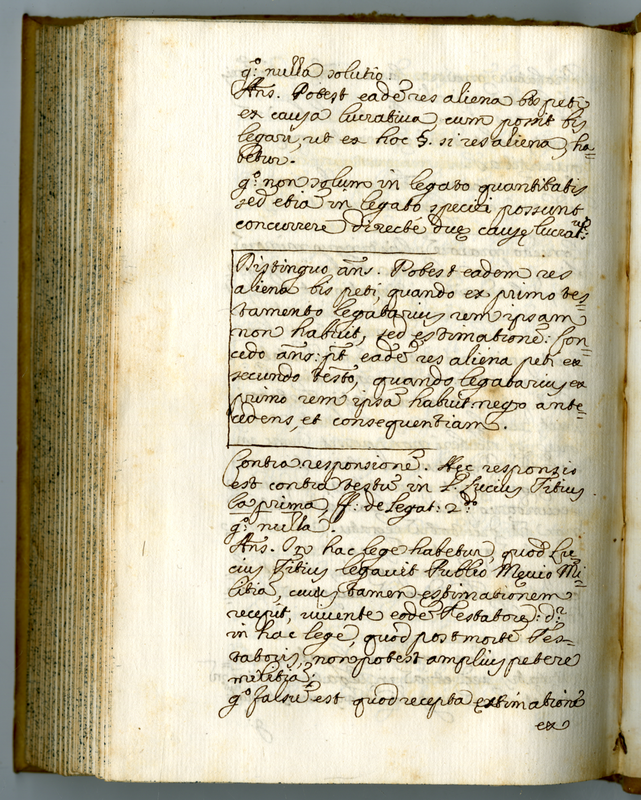 g.º nulla solutio.
Ans. Potest eadē res aliena bis peti
ex causa lucrativa cum possit bis
legari, ut ex hoc §. si res aliena, ha=
betur.
g.º non solum in legato quantitatis
sed etiā in legato speciei possunt
concurrere directè duę causę lucrat:
Distinguo ans. Potest eadem res
aliena bis peti, quando ex primo tes=
tamento legatarius rem ipsam
non habuit, sed ęstimationē: Con=
cedo ans: pt eadē res aliena peti ex
secundo testo, quando legatarius ex
primo rem ipsā habuit nego ante=
cedens, et consequentiam.
Contra responsionē. Hęc responsio
est contra textū in L. Lucius Titius
la prima, ff: de legat: 2.º
g.º nulla.
Ans. In hac lege habetur, quod Lu=
cius Titius legavit Publio Męvio Mi=
litia, cuius tamen ęstimationem
recepit, vivente eodē Testatore: dr
in hac lege, quod post mortē Tes=
tatoris, non potest amplius petere
militiā:
g.º falsū est quod recepta ęxtimationē
ex